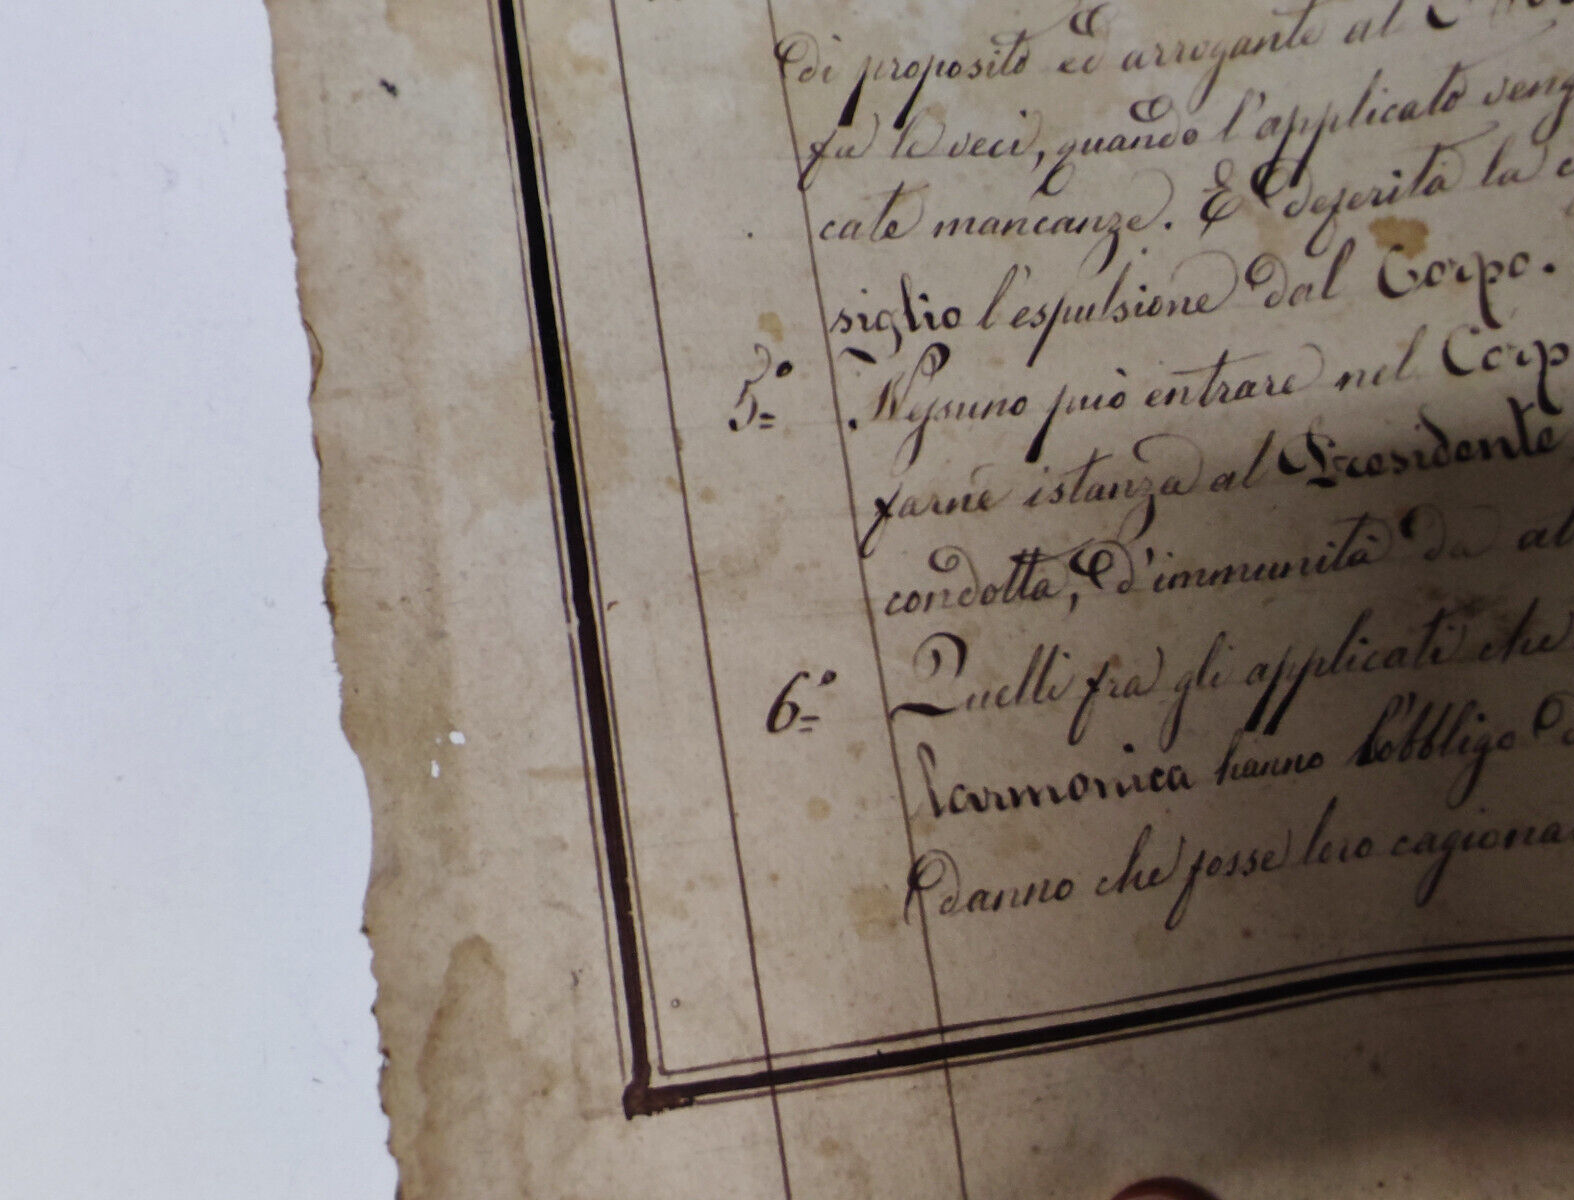 di proposito ed arrogante al
fa le veci, quando l'applicato veng
cate mancanze. È deferita la c
siglio l'espulsione dal Corpo.
5º Nessuno può entrare nel Corp
farne istanza al Presidente
condotta, e d'immunità da al
6º Quelli fra gli applicati che
larmonica hanno l'obbligo d
danno che fosse loro cagiona